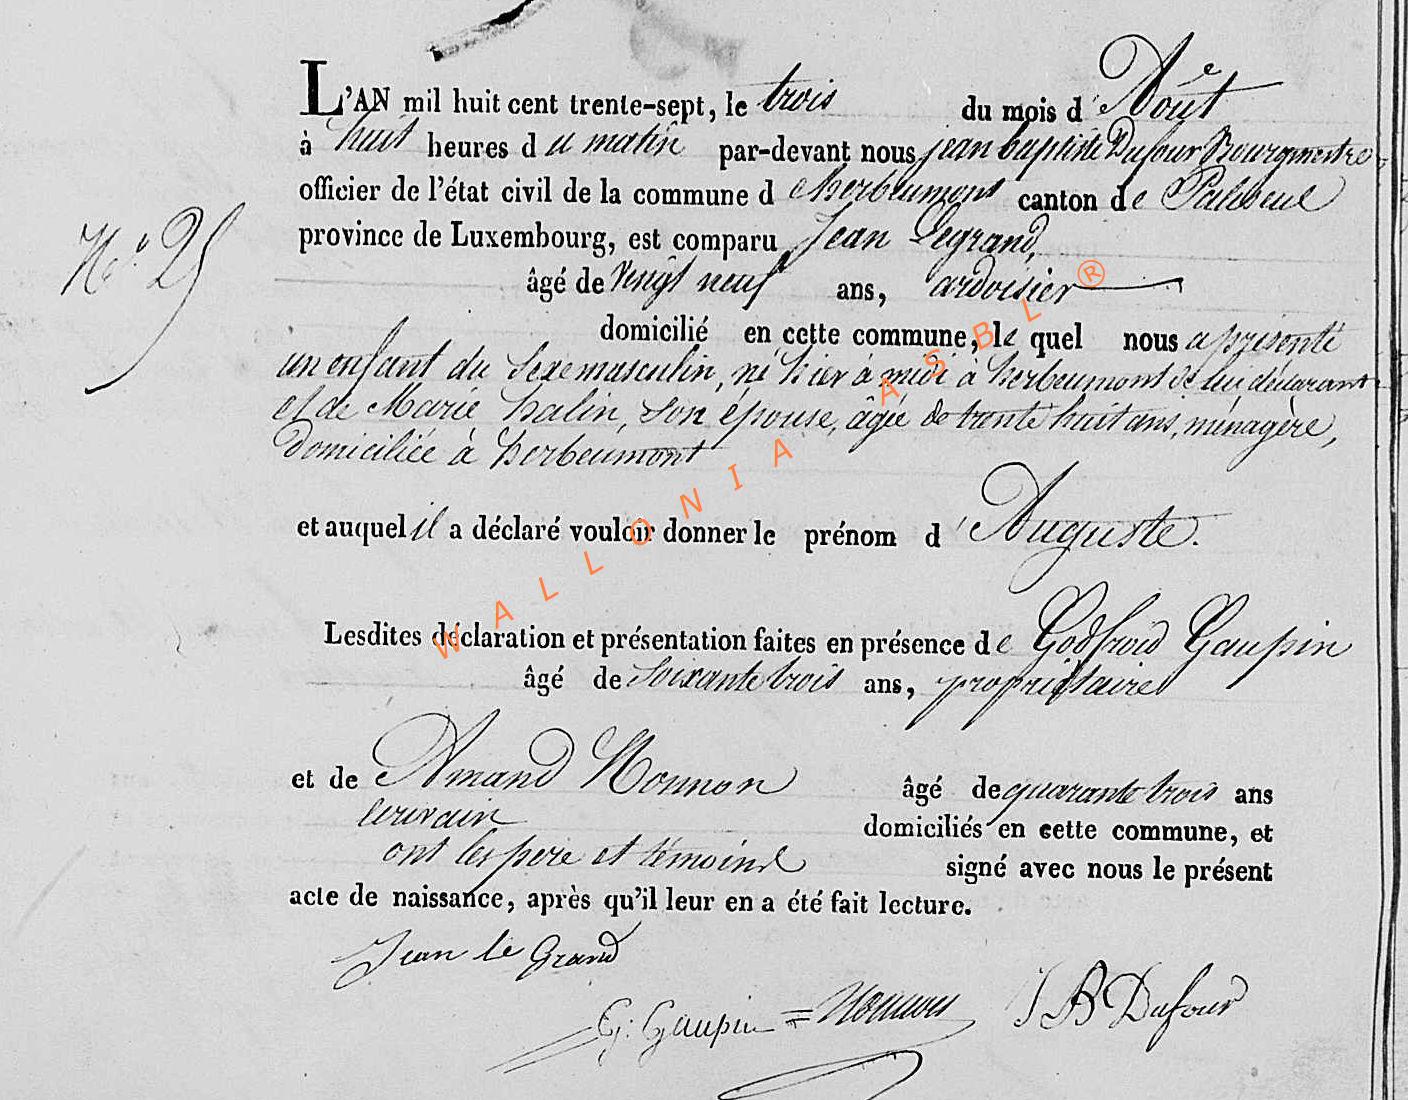 L'AN mil huit cent trente-sept, le trois du mois d'Août
à huit heures du matin par-devant nous jean baptiste Dufour Bourgmestre
officier de l'état civil de la commune d'herbeumont canton de Paliseul
province de Luxembourg, est comparu Jean Legrand,
N.° 25
âgé de vingt neuf ans, ardoisier
domicilié en cette commune, le quel nous a présenté
un enfant du sexe masculin, né hier à midi à herbeumont de lui déclarant
et de Marie halin, son épouse, âgée de trente huit ans, ménagère,
domiciliée à herbeumont
et auquel il a déclaré vouloir donner le prénom d'Auguste.
Lesdites déclaration et présentation faites en présence de Godfroid Gaupin
âgé de soixante trois ans, propriétaire
et de Amand Nonnon âgé de quarante trois ans
écrivain domiciliés en cette commune, et
ont les père et témoins signé avec nous le présent
acte de naissance, après qu'il leur en a été fait lecture.
Jean le Grand
G: Gaupin Nonnon J B Dufour
WALLONIA ASBL ®